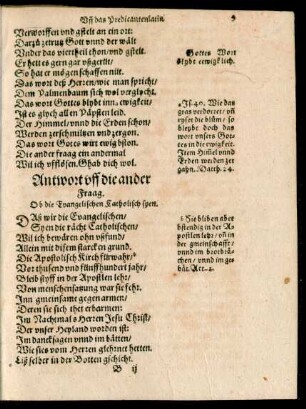 Vff das Predicantenlatin. 9
Verworffen vnd gstelt an ein ort:
Darzů zetrutz Gott vnnd der wält
Vnder das viertheil thon/vnd gstelt.
Er heit es gern gar vßgerüt/
So hat er mögen schaffen nüt.
Das wort deß Herren/wie man spricht/
Dem Palmenbaum sich wol verglycht.
Das wort Gottes blybt inn ewigkeit/
Ist es glych allen Päpsten leid.
Der Himmel/vnnd die Erden schon/
Werden zerschmiltzen vnd zergon.
Das wort Gottes wirt ewig bston.
Die ander fraag ein andermal
Will ich vfflösen. Ghab dich wol.
Gottes Wort
blybt ewigklich.
Jß. 40. Wie das
graß verdorret/vñ
ryset die blům/ so
blybt doch das
wort vnsers Gott
es in die ewigkeit.
Item Himel vnd
Erden werden zer
gahn. Matth. 24
Antwort vff die ander
Fraag.
Ob die Euangelischen Catholisch syen.
Daß wir die Euangelischen/
Syen die rächt Catholischen/
Wil ich bewären ohn vßfund/
Allein mit disem starcken grund.
Die Apostolisch Kirch fürwahr/
Vor thusend vnd fünffhundert jahr/
Bleib styff in der Apostlen lehr/
Von menschensatzung war sie fehr.
Inn gmeinsamt gegen armen/
Deren sie sich thet erbarmen:
Im Nachtmal s Herren Jesu Christ/
Der vnser Heyland worden ist:
Im dancksagen vnnd im bätten/
Wie sies vom Herren glehrnet hetten.
Liß selber in der Botten gschicht.
Sie bliben aber
bstendig in der A
postlen lehr/ vñ in
der gmeinschafft/
vnnd im brotbrä-
chen/ vnnd im ge-
bät. Act. 2.
B ij